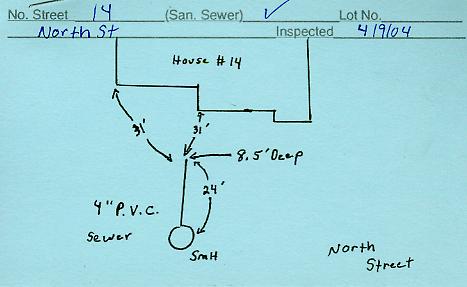 No. Street 14 (San. Sewer) ✓ Lot No.
North St Inspected 4/9/04
House #14
31'
31'
8.5' Deep
24'
4" P.V.C.
Sewer
SMH
North
Street